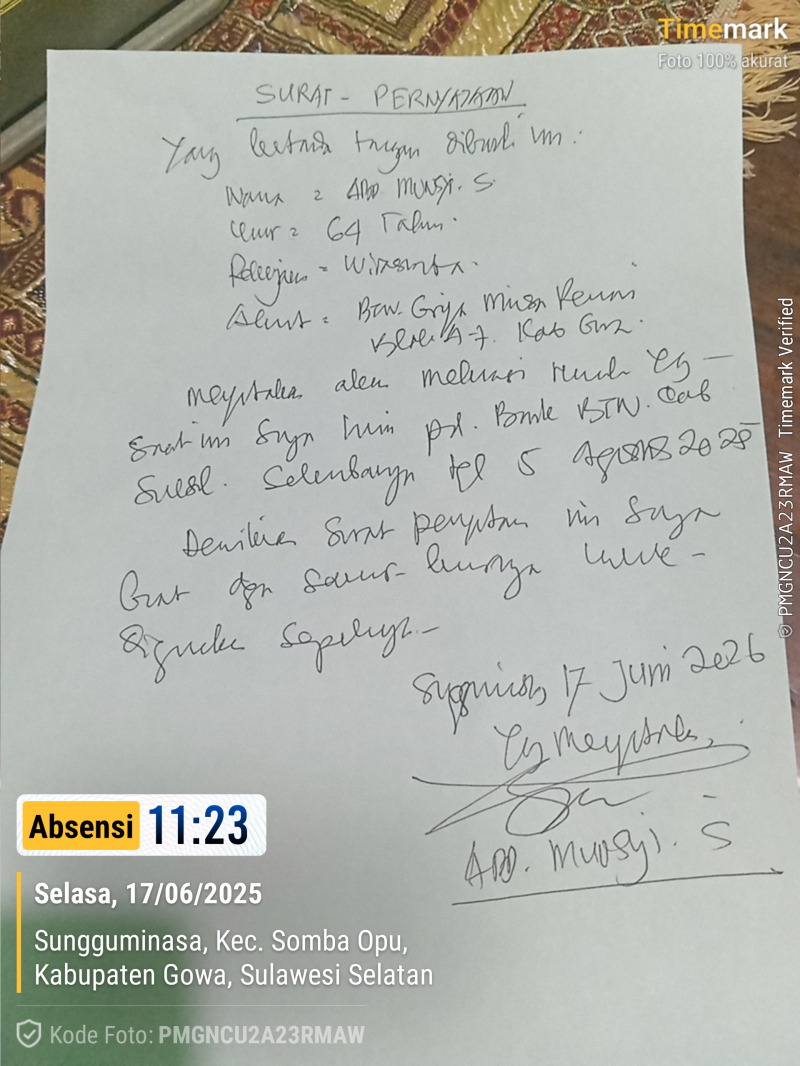 Timemark
Foto 100% akurat
SURAT - PERNYATAAN
Yang bertanda tangan dibawah ini :
Nama = ABD. MUNSYI. S
Umur = 64 Tahun.
Pekerjaan = Wiraswasta.
Alamat = BTN. Griya
Blok A-7. Kab Gowa.
Menyatakan akan melunasi rumah yg
Saat ini Saya huni pd. Bank BTN. Cab
Sulsel. Selambatnya tgl 5 Agustus 2025
Demikian Surat pernyataan ini Saya
Buat dgn untuk
digunakan Seperlunya.
Sungguminasa, 17 Juni 2026
Yg Menyatakan,
ABD. MUNSYI. S
Absensi 11:23
Selasa, 17/06/2025
Sungguminasa, Kec. Somba Opu,
Kabupaten Gowa, Sulawesi Selatan
Kode Foto: PMGNCU2A23RMAW
© PMGNCU2A23RMAW Timemark Verified